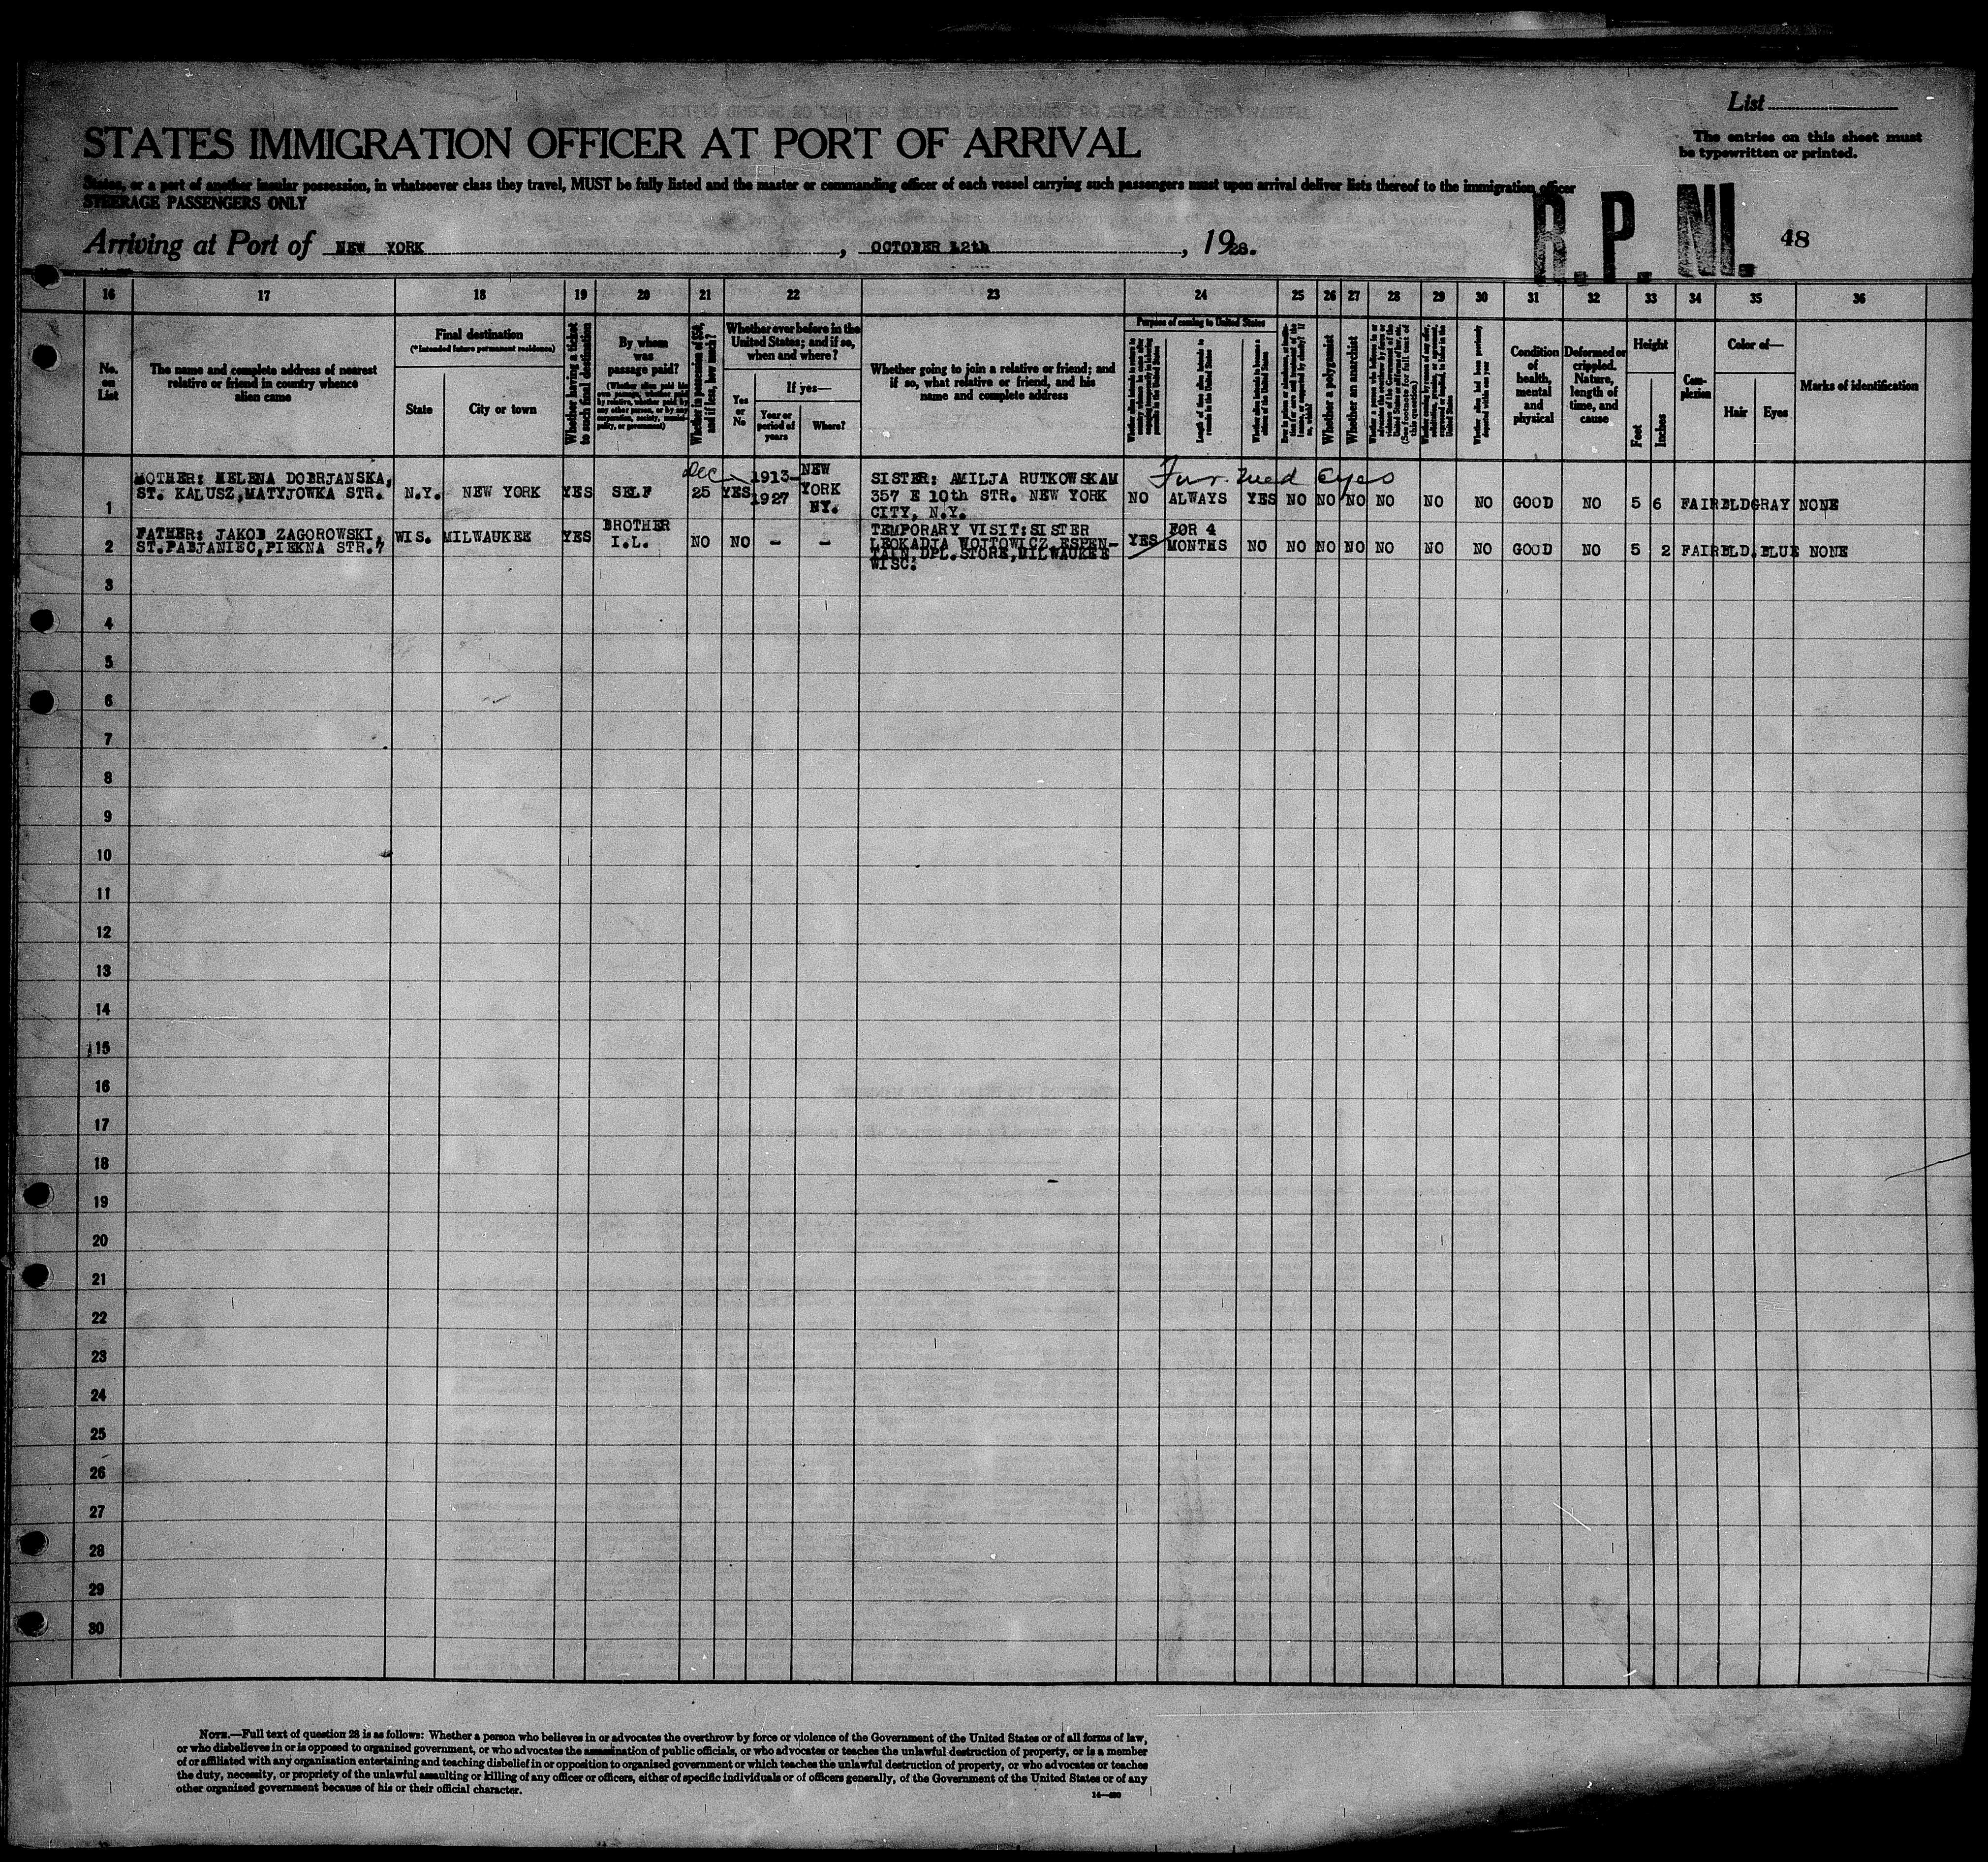 List
The entries on this sheet must
be typewritten or printed.
STATES IMMIGRATION OFFICER AT PORT OF ARRIVAL
States, or a port of another insular possession, in whatsoever class they travel, MUST be fully listed and the master or commanding officer of each vessel carrying such passengers must upon arrival deliver lists thereof to the immigration officer
STEERAGE PASSENGERS ONLY
R.P.M.
48
Arriving at Port of NEW YORK, OCTOBER 12th, 1928.
16 17 18 19 20 21 22 23 24 25 26 27 28 29 30 31 32 33 34 35 36
No. on List
The name and complete address of nearest
relative or friend in country whence
alien came
Final destination
(*Intended future permanent residence)
State
City or town
Whether having a ticket
to such final destination
By whom
was
passage paid?
Whether in possession of $50,
and if less, how much?
Whether ever before in the
United States; and if so,
when and where?
Yes
or
No
If yes—
Year or
period of
years
Where?
Whether going to join a relative or friend; and
if so, what relative or friend, and his
name and complete address
Purpose of coming to United States
Length of time alien intends to
remain in the United States
Whether alien intends to become a
citizen of the United States
Whether a polygamist
Whether an anarchist
Whether alien had been previously
deported within one year
Condition
of
health,
mental
and
physical
Deformed or
crippled.
Nature,
length of
time, and
cause
Height
Feet
Inches
Com-
plexion
Color of—
Hair
Eyes
Marks of identification
Dec
1 MOTHER: HELENA DOBRJANSKA,
ST. KALUSZ,MATYJOWKA STR. N.Y. NEW YORK YES SELF 25 YES 1913-
1927 NEW
YORK
NY. SISTER: AMILJA RUTKOWSKAM
357 E 10th STR. NEW YORK
CITY, N.Y. NO ALWAYS YES NO NO NO NO NO NO GOOD NO 5 6 FAIR BLD GRAY NONE
2 FATHER: JAKOB ZAGOROWSKI,
ST.PABJANIEC,PIEKNA STR.7 WIS. MILWAUKEE YES BROTHER
I.L. NO NO - - TEMPORARY VISIT:SISTER
LEOKADJA WOJTOWICZ ESPEN-
TAIN DPL.STORE,MILWAUKEE
WISC: YES FOR 4
MONTHS NO NO NO NO NO NO NO GOOD NO 5 2 FAIR BLD. BLUE NONE
3
4
5
6
7
8
9
10
11
12
13
14
15
16
17
18
19
20
21
22
23
24
25
26
27
28
29
30
NOTE.—Full text of question 28 is as follows: Whether a person who believes in or advocates the overthrow by force or violence of the Government of the United States or of all forms of law,
or who disbelieves in or is opposed to organised government, or who advocates the assassination of public officials, or who advocates or teaches the unlawful destruction of property, or is a member
of or affiliated with any organisation entertaining and teaching disbelief in or opposition to organised government or which teaches the unlawful destruction of property, or who advocates or teaches
the duty, necessity, or propriety of the unlawful assaulting or killing of any officer or officers, either of specific individuals or of officers generally, of the Government of the United States or of any
other organised government because of his or their official character.